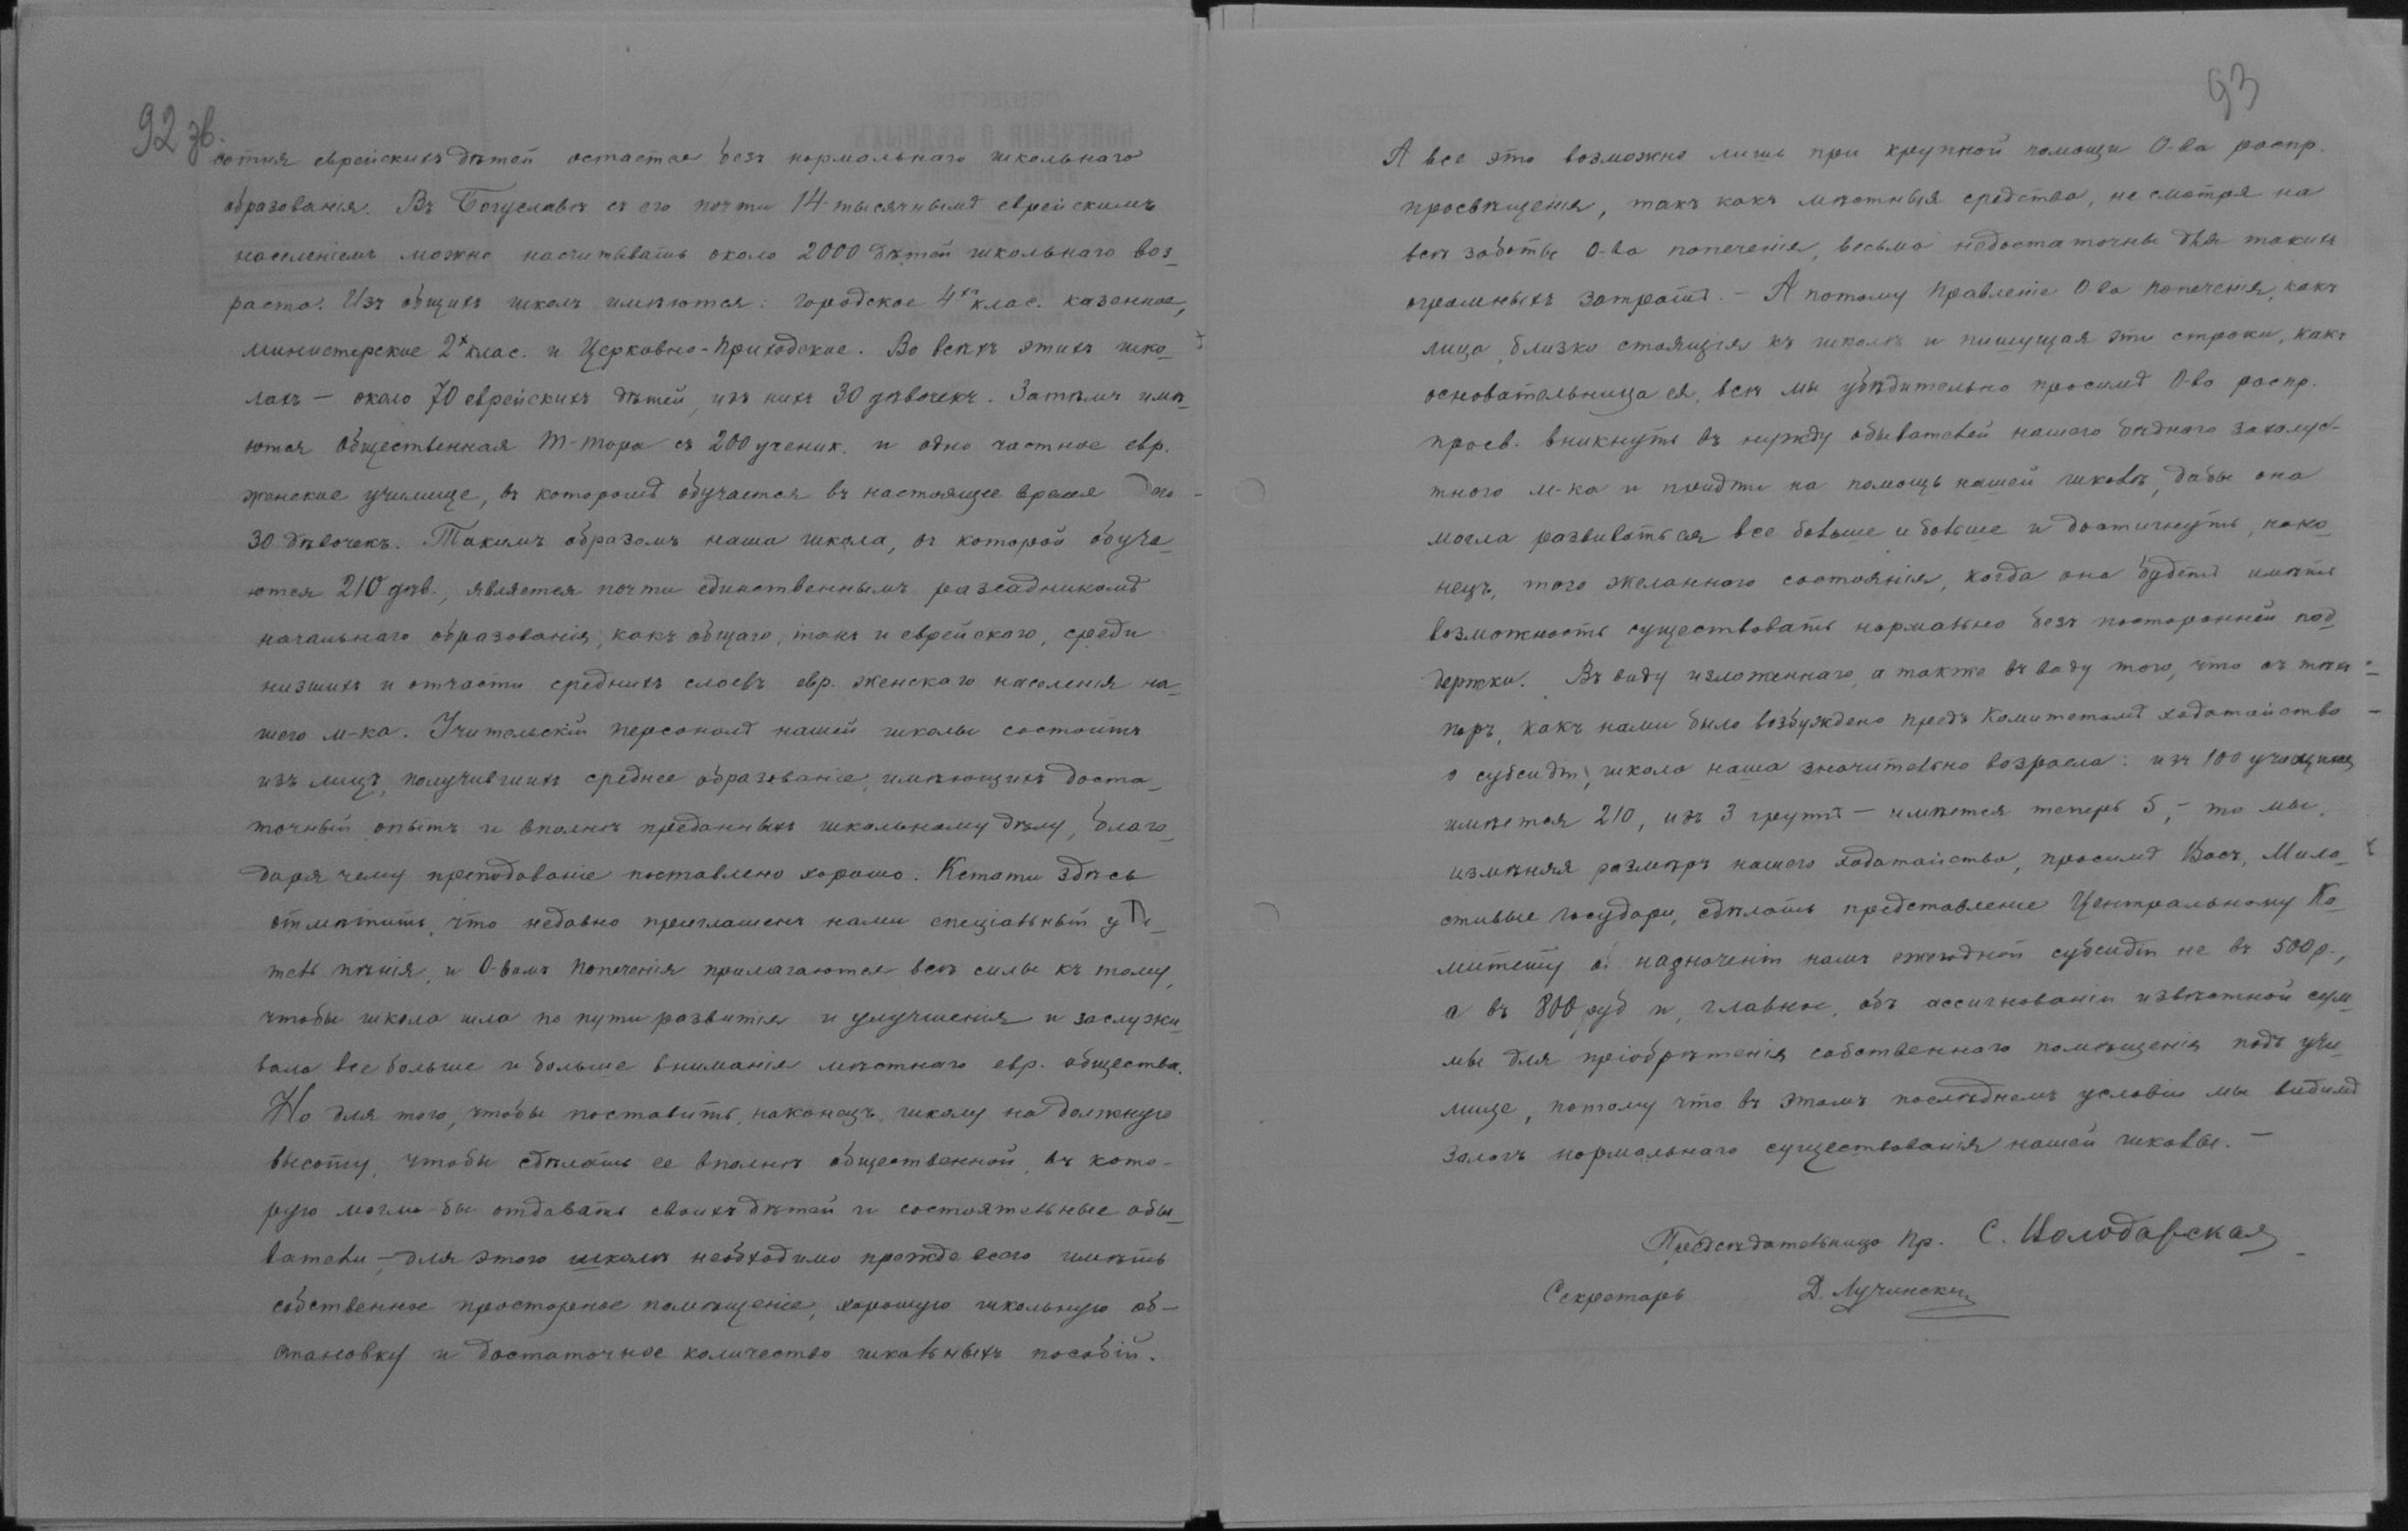 92 зв.
сотня еврейскихъ дѣтей остается безъ нормальнаго школьнаго
образованія. Въ Богуславѣ съ его почти 14-тысячнымъ еврейскимъ
населеніемъ можно насчитывать около 2000 дѣтей школьнаго воз-
раста. Изъ общихъ школъ имѣются: городское 4хъ клас. казенное,
министерское 2х клас. и Церковно-Приходское. Во всѣхъ этихъ шко-
лахъ — около 70 еврейскихъ дѣтей, изъ нихъ 30 дѣвочекъ. Затѣмъ имѣ-
ются общественная Т-тора съ 200 ученик. и одно частное евр.
женское училище, въ которомъ обучается въ настоящее время до
30 дѣвочекъ. Такимъ образомъ наша школа, въ которой обуча-
ются 210 дѣв., является почти единственнымъ разсадникомъ
начальнаго образованія, какъ общаго, такъ и еврейского, среди
низшихъ и отчасти среднихъ слоевъ евр. женскаго населенія на-
шего м-ка. Учительскій персоналъ нашей школы состоитъ
изъ лицъ, получившихъ среднее образованіе, имѣющихъ доста-
точный опытъ и вполнѣ преданныхъ школьному дѣлу, благо-
даря чему преподаваніе поставлено хорошо. Кстати здѣсь
отмѣтить, что недавно приглашенъ нами спеціальный учи-
тель пѣнія, и О-вомъ Попеченія прилагаются всѣ силы къ тому,
чтобы школа шла по пути развитія и улучшенія и заслужи-
вала все больше и больше вниманія мѣстнаго евр. общества.
Но для того, чтобы поставить, наконецъ, школу на должную
высоту, чтобы сдѣлать ее вполнѣ общественной, въ кото-
рую могли-бы отдавать своихъ дѣтей и состоятельные обы-
ватели, — для этого школѣ необходимо прежде всего имѣть
собственное просторное помѣщеніе, хорошую школьную об-
становку и достаточное количество школьныхъ пособій.
93
А все это возможно лишь при крупной помощи О-ва распр.
просвѣщенія, такъ какъ мѣстныя средства, не смотря на
всѣ заботы О-ва попеченія, весьма недостаточны для такихъ
огромныхъ затратъ. — А потому Правленіе О-ва Попеченія, какъ
лица, близко стоящія къ школѣ и пишущая эти строки, какъ
основательница ея, всѣ мы убѣдительно просимъ О-во распр.
просв. вникнуть въ нужду обывателей нашего бѣднаго захолуст-
тного м-ка и придти на помощь нашей школѣ, дабы она
могла развиваться все больше и больше и достигнуть, нако-
нецъ, того желанного состоянія, когда она будетъ имѣть
возможность существовать нормально безъ посторонней под-
держки. Въ виду изложеннаго, а также въ виду того, что съ тѣхъ
поръ, какъ нами было возбуждено предъ Комитетомъ ходатайство
о субсидіи, школа наша значительно возрасла: изъ 100 учащихся
имѣется 210, изъ 3 группъ — имѣется теперь 5, — то мы,
измѣняя размѣръ нашего ходатайства, просимъ Васъ, Мило-
стивые Государи, сдѣлать представленіе Центральному Ко-
митету о назначеніи намъ ежегодной субсидіи не въ 500 р.,
а въ 800 руб и, главное, объ ассигнованіи извѣстной сум-
мы для пріобрѣтенія собственнаго помѣщенія подъ учи-
лище, потому что въ этомъ послѣднемъ условіи мы видимъ
залогъ нормальнаго существованія нашей школы. —
Предсѣдательница Пр. С.
Секретарь Д. Лучинскій